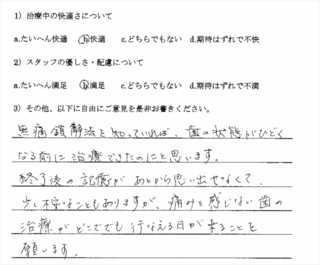 1）治療中の快適さについて
a.たいへん快適 b.快適 c.どちらでもない d.期待はずれで不快
2）スタッフの優しさ・配慮について
a.たいへん満足 b.満足 c.どちらでもない d.期待はずれで不満
3）その他、以下に自由にご意見を是非お書きください。
無痛鎮静法を知っていれば、歯の状態がひどく
なる前に治療できたのにと思います。
終了後の記憶があとから思い出せなくて、
少し不安なこともありますが、痛みを感じない歯の
治療がどこででも行なえる日が来ることを
願います。